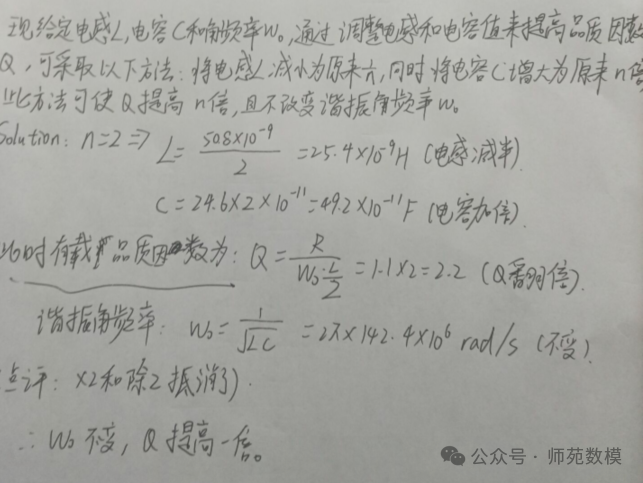 现给定电感L,电容C和角频率W₀,通过调整电感和电容值来提高品质因数
Q,可采取以下方法:将电感L减小为原来1/n,同时将电容C增大为原来n倍
此方法可使Q提高n倍,且不改变谐振角频率W₀。
Solution: n=2 ⇒ L = (50.8×10⁻⁹)/2 = 25.4×10⁻⁹H (电感减半)
C = 24.6×2×10⁻¹¹ = 49.2×10⁻¹¹F (电容加倍)
此时有载品质因数为: Q = R/(W₀·L/2) = 1.1×2 = 2.2 (Q翻倍).
谐振角频率: W₀ = 1/√LC = 2π×142.4×10⁶ rad/s (不变).
点评: ×2和除2抵消了).
∴ W₀不变, Q提高一倍。
公众号·师苑数模